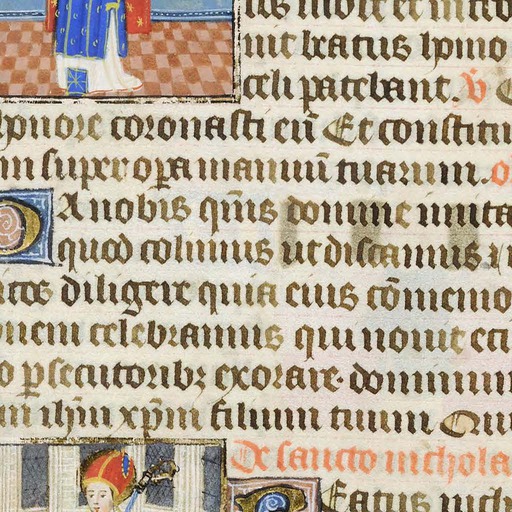 nit beatus homo
celi patebant. V
honore coronasti eū Et constitui
super opera manuū tuarum. O
DA nobis qm̄s domine imita
quod colimus ut discamus &
diligere quia eius cōmemo
celebramus qui novit eti
p̱secutoribȝ exorare. dominum
ihm̄ xp̄m filium tuum Qui
De sancto nichola
Beatus nich